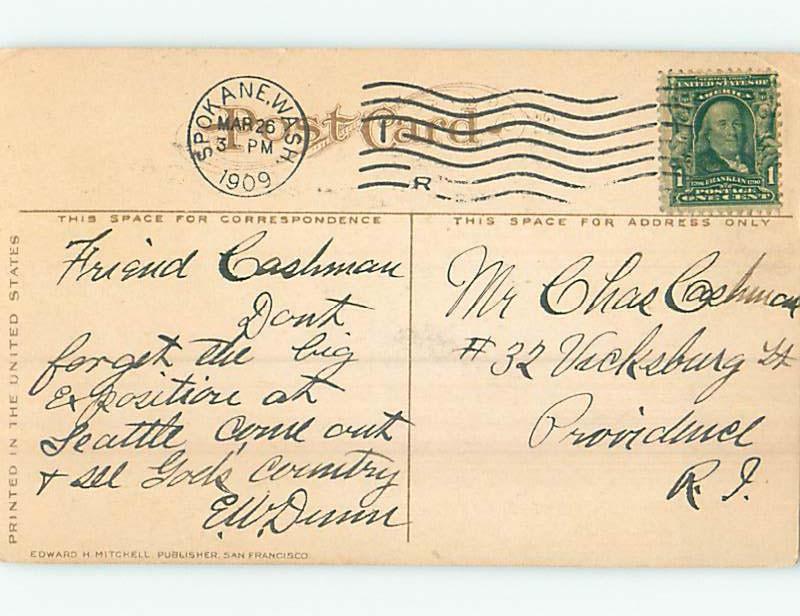 Post Card
SPOKANE, WASH.
MAR 26
3 - PM
1909
R
SERIES 1902
UNITED STATES OF
AMERICA
1706 FRANKLIN 1790
1 POSTAGE 1
ONE CENT
THIS SPACE FOR CORRESPONDENCE
THIS SPACE FOR ADDRESS ONLY
PRINTED IN THE UNITED STATES
Friend Cashman
Dont
forget the big
Exposition at
Seattle come out
+ see God's country
E.W. Dunn
Mr Chas Cashman
# 32 Vicksburg St
Providence
R. I.
EDWARD H. MITCHELL, PUBLISHER, SAN FRANCISCO.